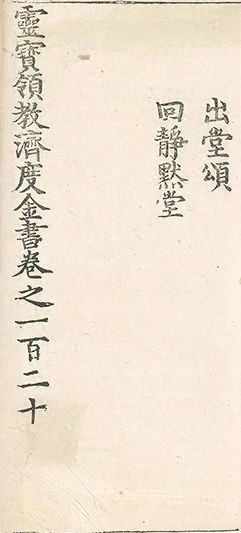 出堂頌
回靜默堂
靈寶領教濟度金書卷之一百二十